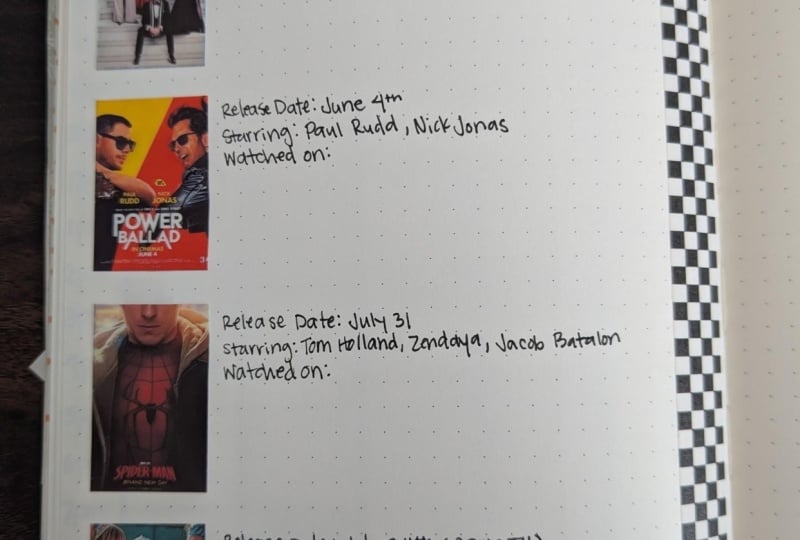 Release Date: June 4th
Starring: Paul Rudd, Nick Jonas
Watched on:
PAUL RUDD
NICK JONAS
POWER
BALLAD
IN CINEMAS
JUNE 4
Release Date: July 31
Starring: Tom Holland, Zendaya, Jacob Batalon
Watched on:
SPIDER-MAN
BRAND NEW DAY